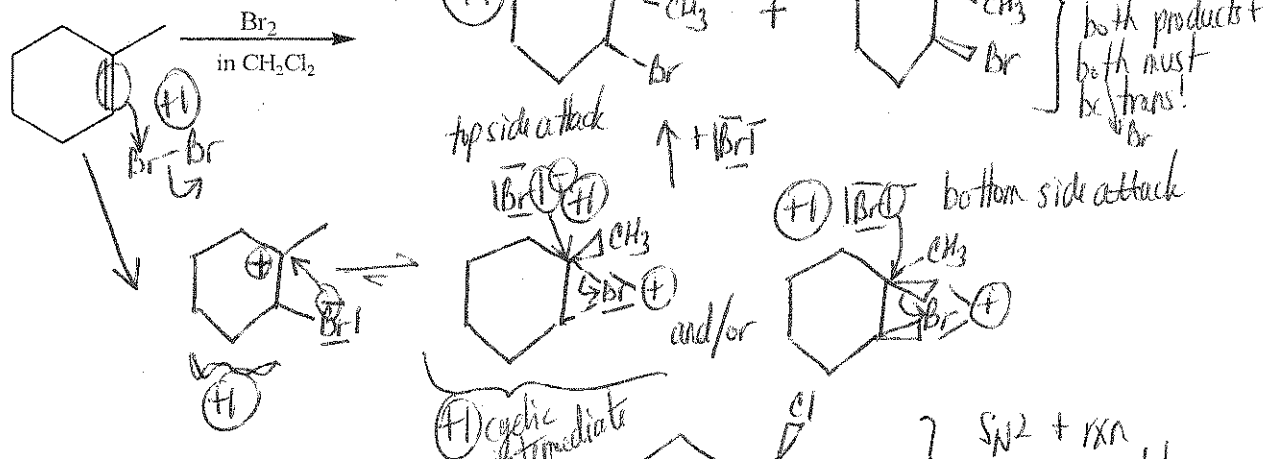 Br2
in CH2Cl2
+1
CH3
+
CH3
Br
Br
both products +
both must
be trans!
Br
+1
Br-Br
top side attack
+ Br
Br - +1
+1 Br bottom side attack
CH3
CH3
+
Br +
Br +
Br
and/or
+1
+1 cyclic
intermediate
Cl
SN2 + rxn